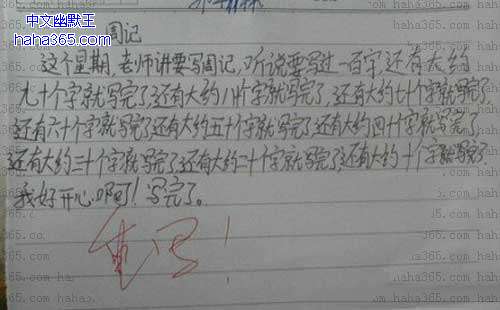 中文幽默王
haha365.com
周记
这个星期,老师讲要写周记,听说要写过一百字,还有大约
九十个字就写完了,还有大约八十个字就写完了,还有大约七十个字就写完了,
还有六十个字就写完了还有大约五十个字就写完了还有大约四十个字就写完了
还有大约三十个字就写完了还有大约二十个字就写完了,还有大约十个字就写完了.
我好开心啊!写完了。
重写!